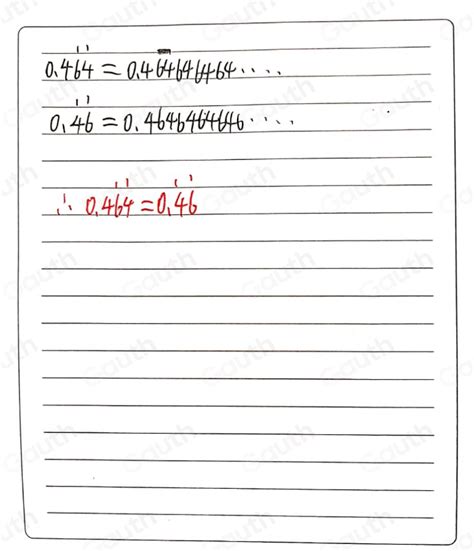 0.46̇4̇ = 0.464646464....
0.4̇6̇ = 0.4646464646....
∴ 0.46̇4̇ = 0.4̇6̇